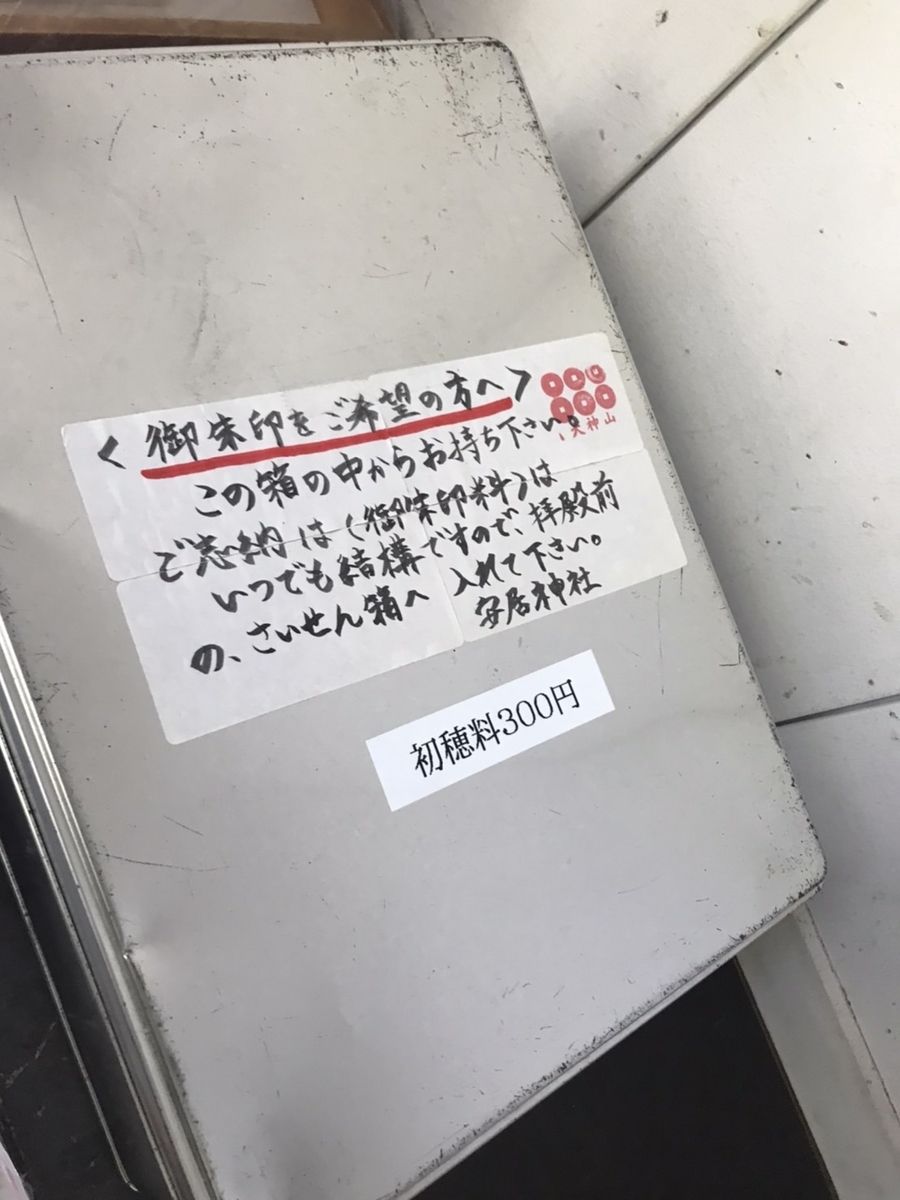 <御朱印をご希望の方へ>
天神山
この箱の中からお持ち下さい。
ご志納は(御朱印料)は
いつでも結構ですので、拝殿前
の、さいせん箱へ入れて下さい。
安居神社
初穂料300円